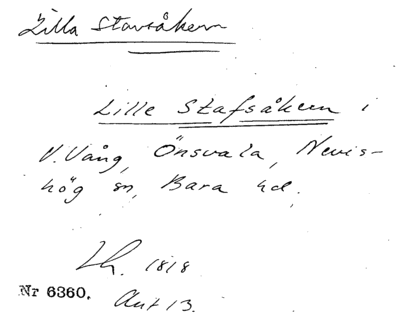 Lilla Stavsåkern
Lille Stafsåkern i
V. Vång, Önsvala, Nevis-
hög sn, Bara hd.
Lh. 1818
Nr 6360. Akt 13.